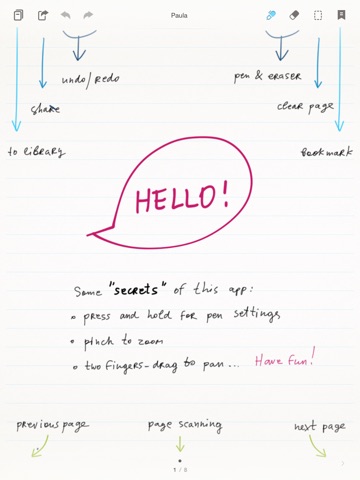 Paula
undo/redo
pen & eraser
share
clear page
to library
bookmark
HELLO!
Some "secrets" of this app:
• press and hold for pen settings
• pinch to zoom
• two fingers-drag to pan...
Have fun!
previous page
page scanning
next page
1 / 8